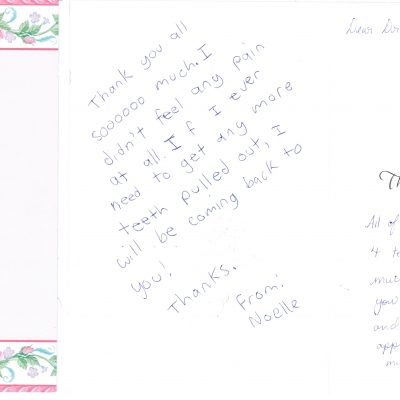 Thank you all
soooooo much. I
didn't feel any pain
at all. If I ever
need to get any more
teeth pulled out, I
will be coming back to
you!
Thanks.
From:
Noelle
Dear
Th
All of
4 te
much
you
and
appr
mu